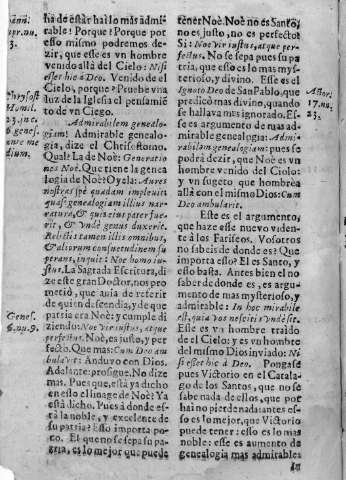 ha de estàr hallo mas admi-
rable! Porque? Porque por
esso mismo podremos de-
zir, que esse es vn hombre
venido allà del Cielo: Nisi
esset hic à Deo. Venido de el
Cielo, porque? Pruebe vna
luz de la Iglesia el pensamiẽ-
to de vn Ciego.
Admirabilem genealo-
giam! Admirable genealo-
gia, dize el Chrisostomo.
Qual? La de Noè: Generatio
nes Noë. Que tiene la genea
logia de Noè? Oyela: Aures
nostras spè quadam implevit
quasi genealogiam illius nar-
ratura, & quis eius pater fue-
rit, & vnde genus duxerit.
Relictis tamen illis omnibus,
& aliorum consuetudinem su
perans, inquit: Noe homo iu-
stus. La Sagrada Escritura, di
ze este gran Doctor, nos pro
metiò, que auia de referir
de quien descendia, y de que
patria era Noè; y cumple di
ziendo: Noe vir iustus, atque
perfectus. Noè, es justo, y per
fecto. Que mas: Cum Deo am
bulavit: Anduvo con Dios.
Adelante: prosigue. No dize
mas. Pues què, està ya dicho
en esso el linage de Noè? Ya
està dicho. Pues à donde es-
ta lo noble, y excelente de
su patria? Esso importa po-
co. El que no se sepa su pa-
tria, es lo mejor que puede
Chrysost
Homil.
23. in c.
6 genes.
Genes.
6. nu. 9.
tener Noè. Noè no es Santo,
no es justo, no es perfecto?
Si: Noe vir iustus, atque per-
fectus. No se sepa pues su pa
tria, que esso es lo mas mys-
terioso, y divino. Esse es el
Ignoto Deo de San Pablo, que
predicò mas divino, quando
se hallava mas ignorado. Es-
se es argumento de mas ad-
mirable genealogia: Admi-
rabilem genealogiam; pues se
podrà dezir, que Noè es vn
hombre venido del Cielo:
y vn sugeto que hombrèa
allà con el mismo Dios: Cum
Deo ambulavit.
Este es el argumento,
que haze este nuevo viden-
te à los Fariseos. Vosotros
no sabeis de donde es? Que
importa esso? El es Santo, y
esso basta. Antes bien el no
saber de donde es, es argu-
mento de mas mysterioso, y
admirable: In hoc mirabile
est, quia vos nescitis vnde sit.
Esse es vn hombre traìdo
de el Cielo: y es vn hombre
del mismo Dios inviado: Ni
si esset hic à Deo. Pongase
pues Victorio en el Catalo-
go de los Santos, que no se
sabe nada de ellos, que por
hai no pierde nada: antes es-
so es lo mejor, que Victorio
puede tener: esso es lo mas
noble: esse es aumento de
genealogia mas admirables
Actor
17. nu.
23.